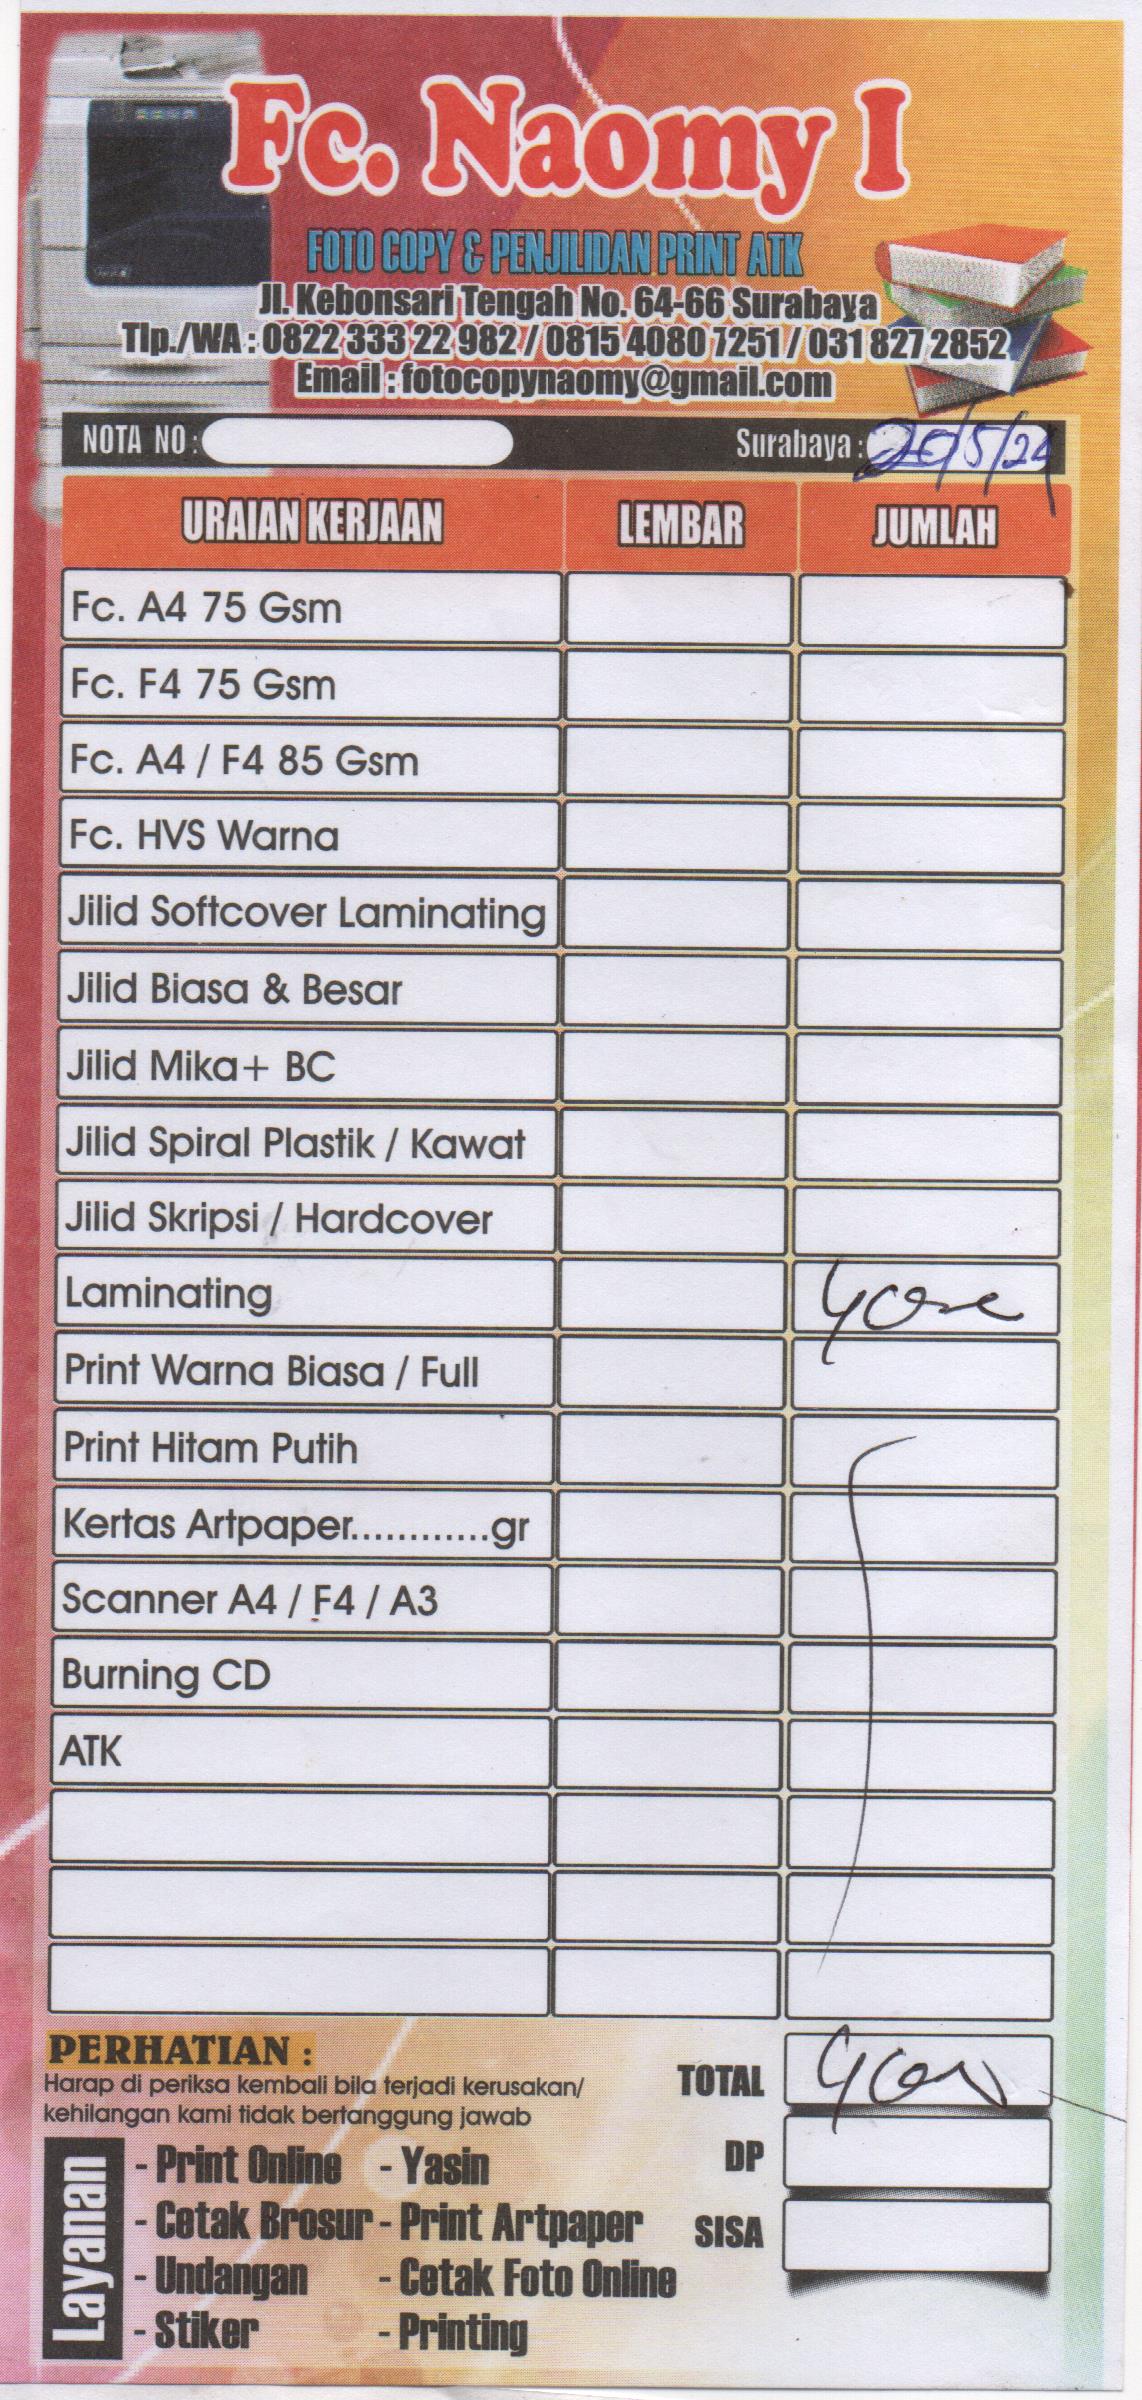 Fc. Naomy I
FOTO COPY & PENJILIDAN PRINT ATK
Jl. Kebonsari Tengah No. 64-66 Surabaya
Tlp./WA : 0822 333 22 982 / 0815 4080 7251 / 031 827 2852
Email : fotocopynaomy@gmail.com
NOTA NO : Surabaya : 20/5/24
URAIAN KERJAAN LEMBAR JUMLAH
Fc. A4 75 Gsm
Fc. F4 75 Gsm
Fc. A4 / F4 85 Gsm
Fc. HVS Warna
Jilid Softcover Laminating
Jilid Biasa & Besar
Jilid Mika+ BC
Jilid Spiral Plastik / Kawat
Jilid Skripsi / Hardcover
Laminating
Print Warna Biasa / Full
Print Hitam Putih
Kertas Artpaper............gr
Scanner A4 / F4 / A3
Burning CD
ATK
PERHATIAN :
Harap di periksa kembali bila terjadi kerusakan/
kehilangan kami tidak bertanggung jawab
TOTAL
DP
SISA
Layanan
- Print Online - Yasin
- Cetak Brosur - Print Artpaper
- Undangan - Cetak Foto Online
- Stiker - Printing